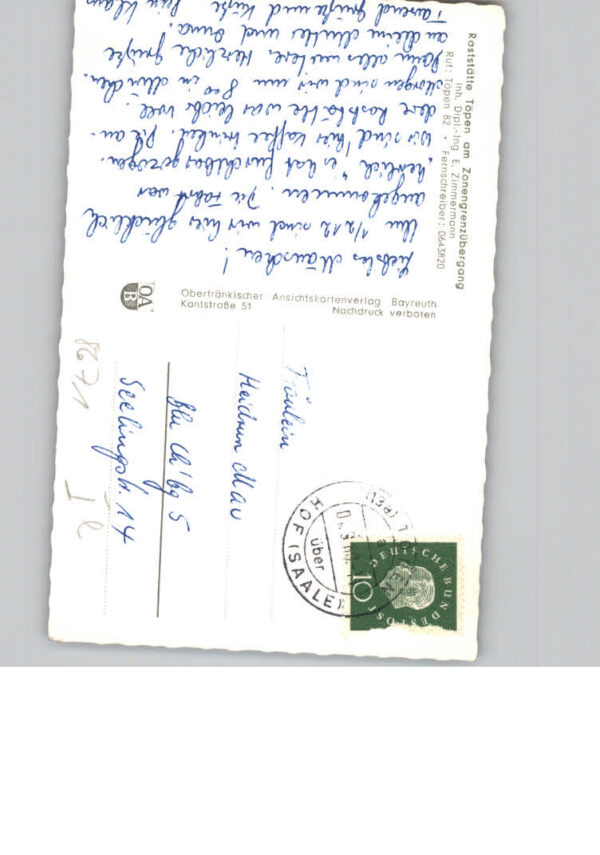 Raststätte Töpen am Zonengrenzübergang
Inh. Dipl.-Ing. E. Zimmermann
Ruf: Töpen 82 · Fernschreiber: 0643820
Liebstes Mäuschen!
Um 1/2 12 sind wir hier glücklich
angekommen. Die Fahrt war
"herrlich", es hat furchtbar gezogen.
Wir sind hier Kaffee trinken. Die an-
dere Raststätte war leider voll.
Morgen sind wir um 8 00 in München.
Dann alles weitere. Herzliche Grüße
an Deine Mutter und Oma.
Tausend Grüße und Küsse Dein Klaus
OA
B
Oberfränkischer Ansichtskartenverlag Bayreuth
Kantstraße 51 Nachdruck verboten
Fräulein
Heidrun Mau
Bln Ch'bg 5
Seelingstr. 14
8671
HOF (SAALE)
über
DEUTSCHE BUNDESPOST
10